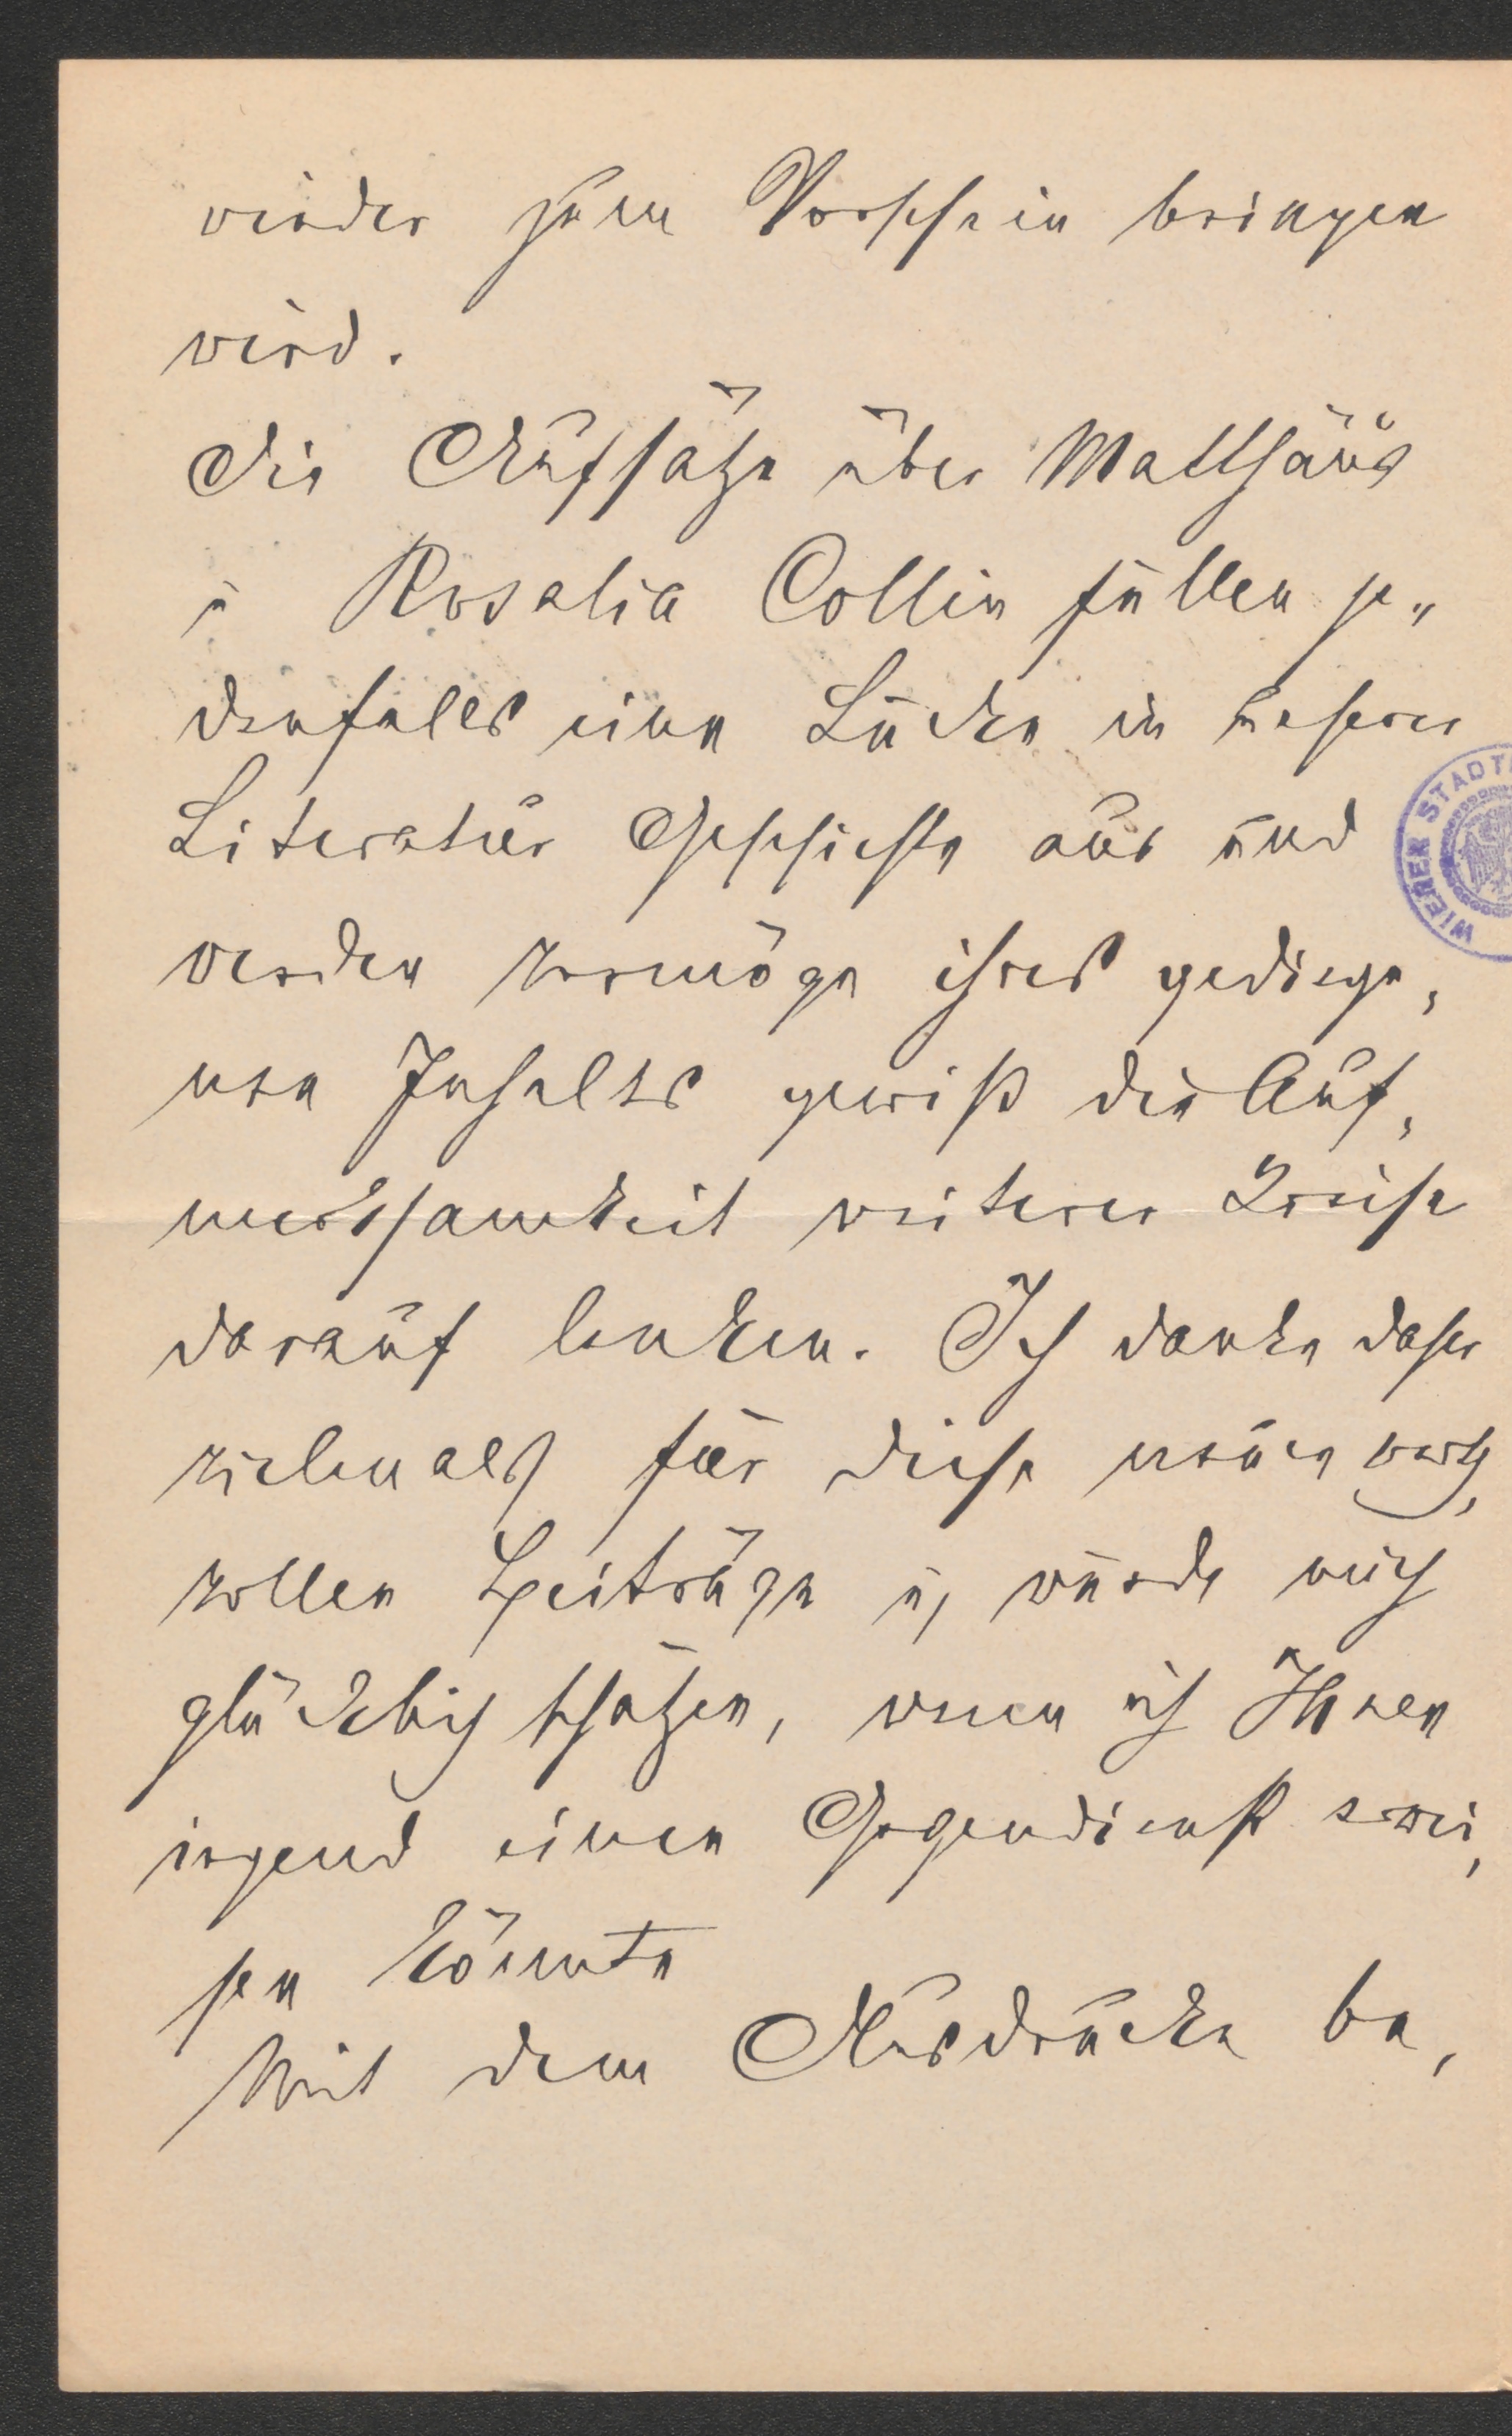 wieder zum Vorschein bringen
wird.
Die Aufsätze über Matthäus
u Rosalia Collin füllen je„
denfalls eine Lücke in unserer
Literatur Geschichte aus und
werden vermöge ihres gediege„
nen Inhaltes gewiß die Auf„
merksamkeit weiterer Kreise
darauf lenken. Ich danke daher
vielmals für diese neuen werth„
vollen Beiträge u, würde mich
glücklich schätzen, wenn ich Ihnen
irgend einen Gegendienst erwei„
sen könnte
Mit dem Ausdrucke be„
WIENER STADT